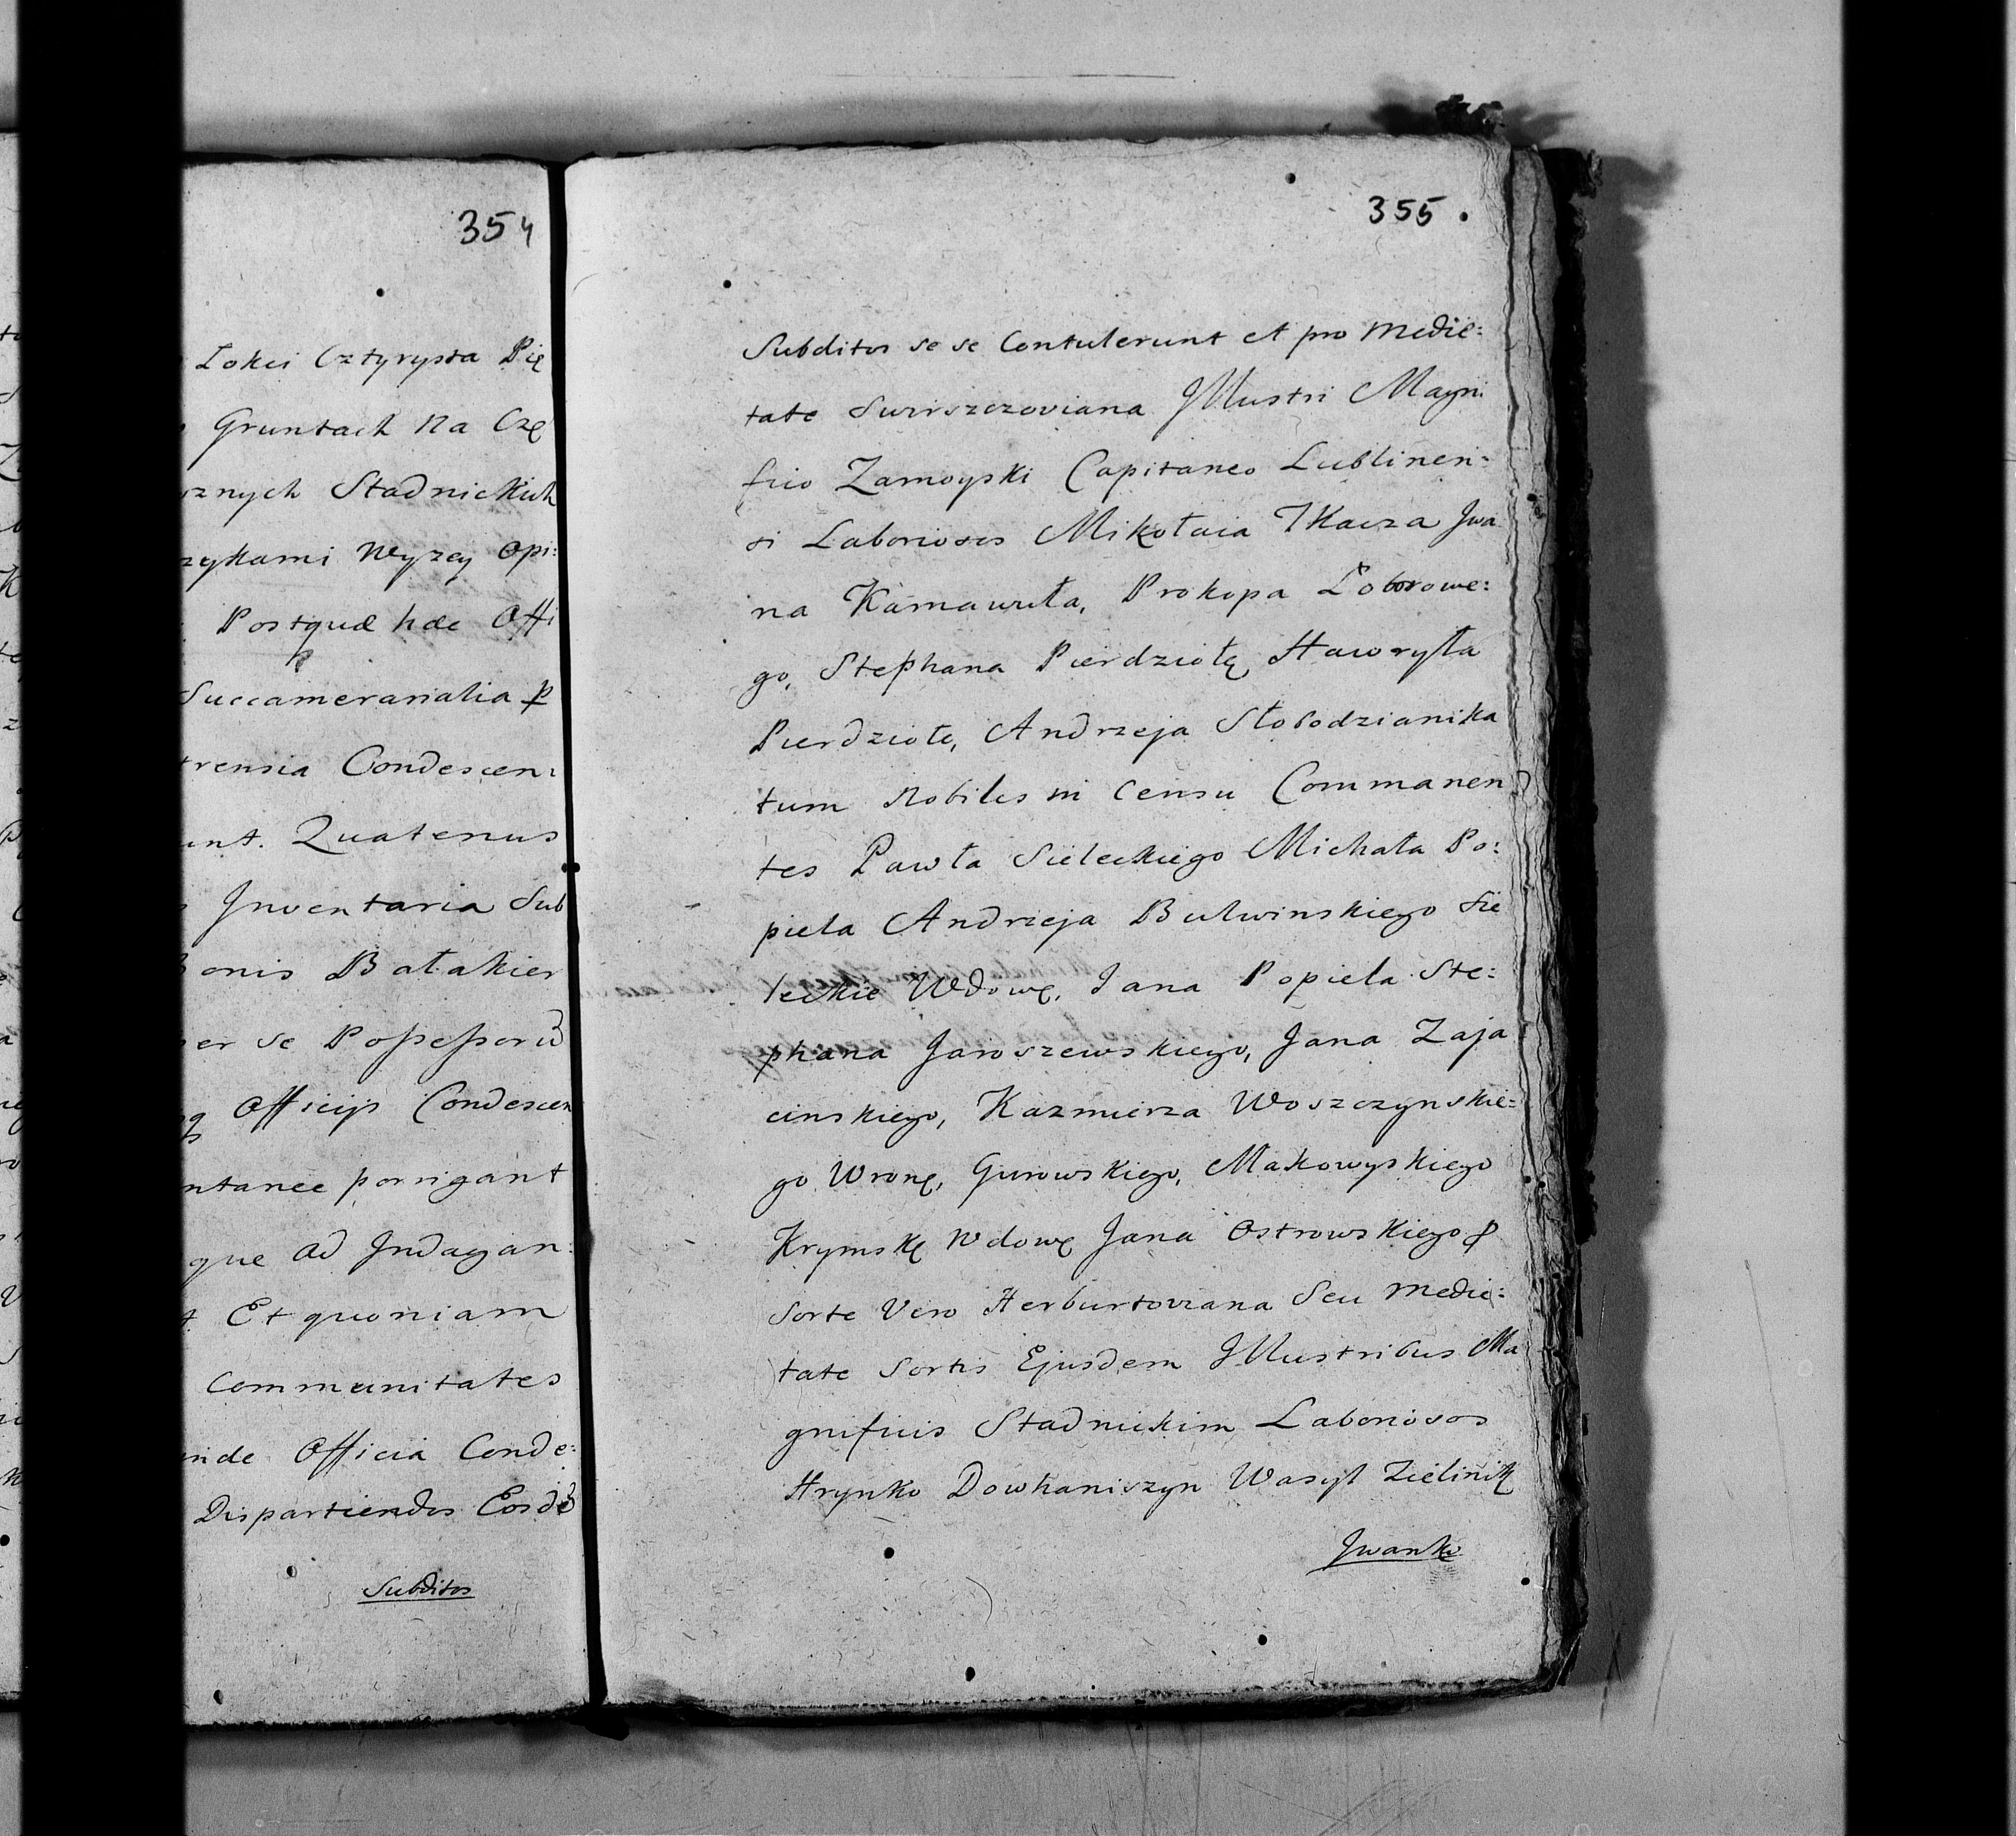 354
Łokci Cztyrysta Pię
Gruntach Na Czę
znych Stadnickich
zykami Wyzey Opi:
Postquæ hæc Offi
Succamerarialia p
trensia Condescen:
unt. Quatenus
Inventaria Sub
Bonis Bałakier
per se Possessorū
q Officijs Condescen
ntanee porrigant
que Ad Indagan:
t Et quoniam
Communitates
inde Officia Conde:
Dispartiendos Eosdē
Subditos
355.
Subditos se se Contulerunt et pro Medie:
tate Swirszczoviana Illustri Magni
fico Zamoyski Capitaneo Lublinen:
si Laboriosos Mikołaia Tkacza Iwa
na Karnawuła, Prokopa Loborowe:
go, Stephana Pierdziołę Hawryła
Pierdzioło, Andrzeja Słobodzianika
tum Nobiles in Censu Commanen
tes Pawła Sieleckiego Michała Po:
piela Andrzeja Bulwinskiego Sie
leckie Wdowę, Jana Popiela Ste:
phana Jaroszewskiego, Jana Zaja
cinskiego, Kazmierza Woszczynskie:
go Wronę, Gurowskiego, Makowyskiego
Krymskę Wdowę Jana Ostrowskiego p
Sorte Vero Herburtoviana Seu Medie:
tate Sortis Ejusdem Illustribus Ma
gnificis Stadnickim Laboriosos
Hrynko Dowhaniszyn Wasyl Zielinik
Iwanko